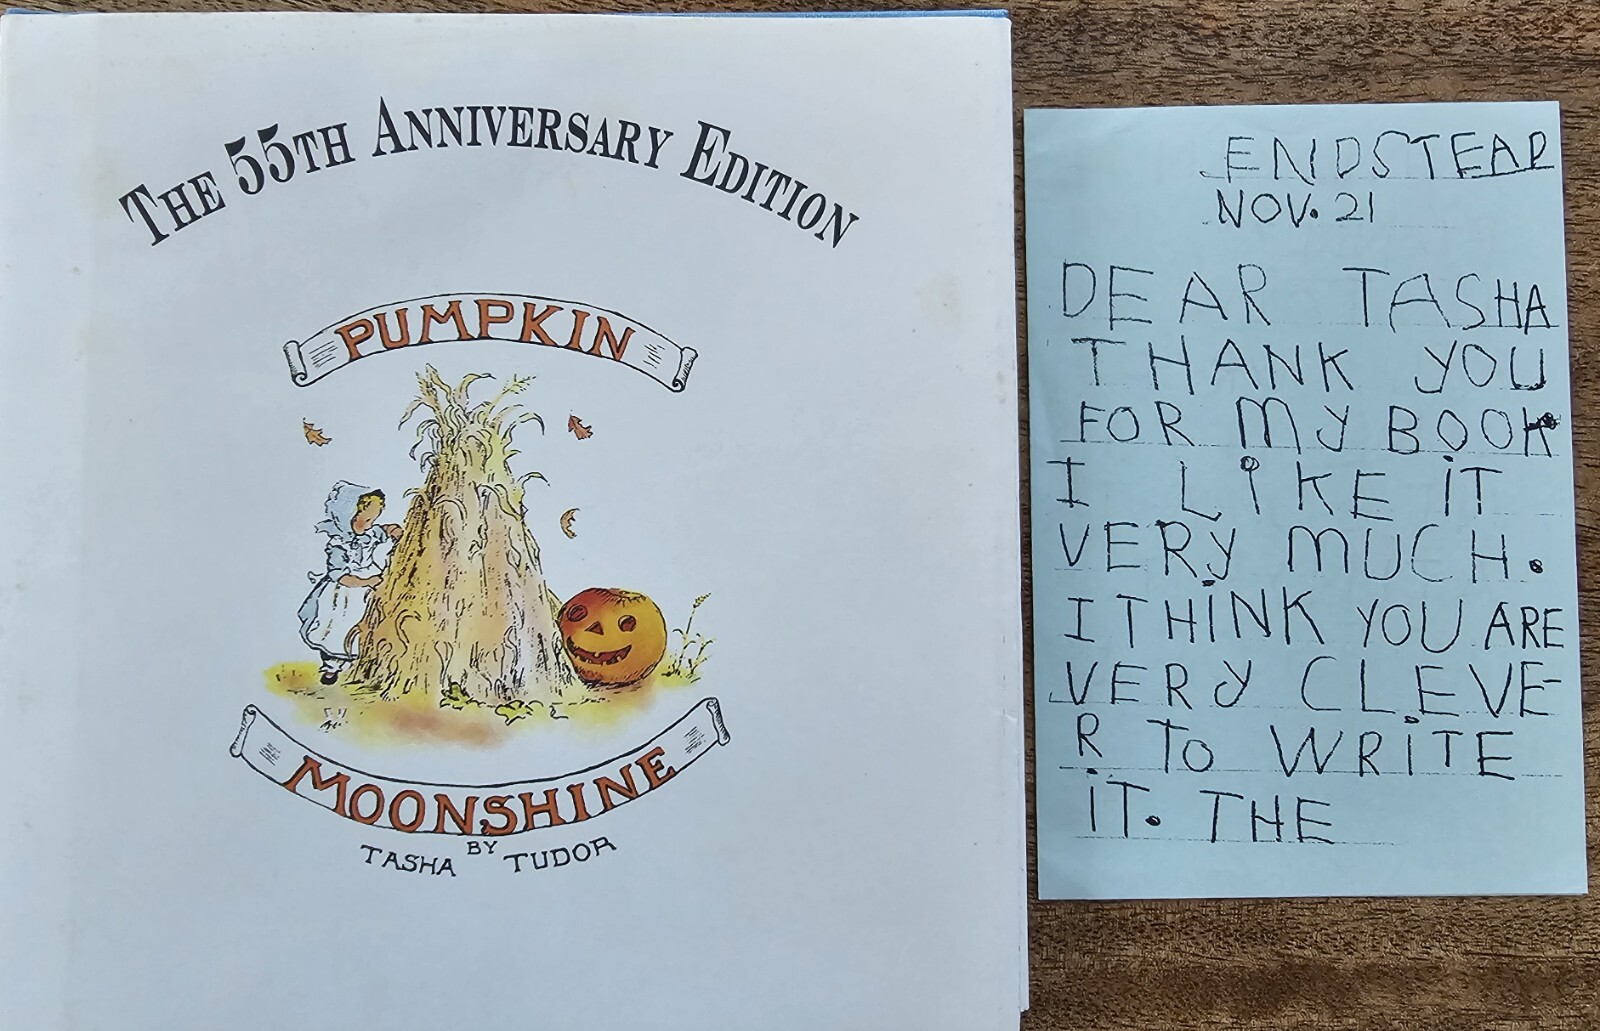 THE 55TH ANNIVERSARY EDITION
PUMPKIN
MOONSHINE
BY
TASHA TUDOR
ENDSTEAD
NOV. 21
DEAR TASHA
THANK YOU
FOR MY BOOK
I LIKE IT
VERY MUCH.
I THINK YOU ARE
VERY CLEVE-
R TO WRITE
IT. THE